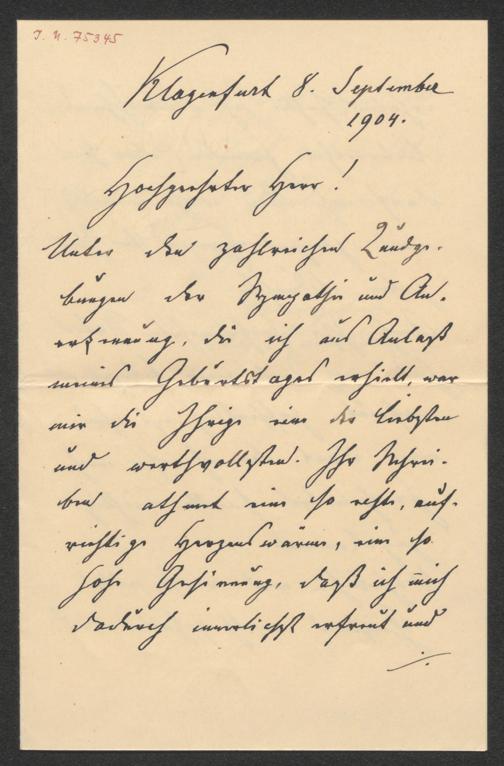 J. N. 75345
Klagenfurt 8. September
1904.
Hochgeehrter Herr!
Unter den zahlreichen Kundge-
bungen der Sympathie und An-
erkennung, die ich aus Anlaß
meines Geburtstages erhielt, war
mir die Ihrige eine der liebsten
und werthvollsten. Ihr Schrei-
ben athmet eine so echte, auf-
richtige Herzenswärme, eine so
hohe Gesinnung, daß ich mich
dadurch innerlichst erfreut und
./.